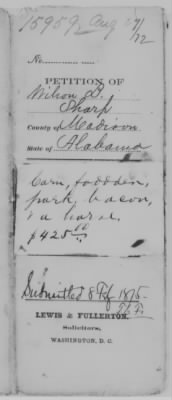 15959 Aug 7/72
No.
PETITION OF
Wilson D.
Sharp
County of Madison
State of Alabama
Corn, fodder,
pork, bacon,
& a horse.
$425.00
Submitted 8 Feby 1875
LEWIS & FULLERTON,
Solicitors,
WASHINGTON, D. C.